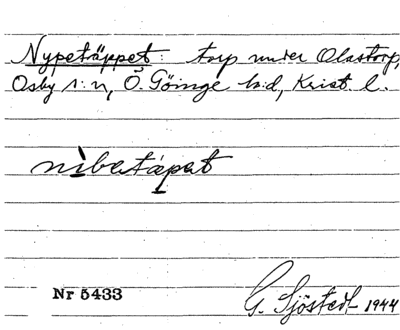 Nypetäppet: torp under Olastorp,
Osby s:n, Ö. Göinge h:d, Krist. l.
nibatäpat
Nr 5433
G. Sjöstedt 1944